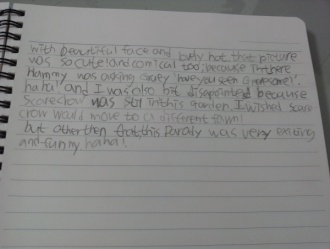 with beautiful face and hot that picture
was so cute and comical too, because in there
Mummy was asking Grey "have you seen Gruesome!".
haha! and I was also bit disapointed because
scarecrow was still in this garden. I wished scare
crow would move to a different town!
but other then that, this Paraly was very exiting
and funny haha!